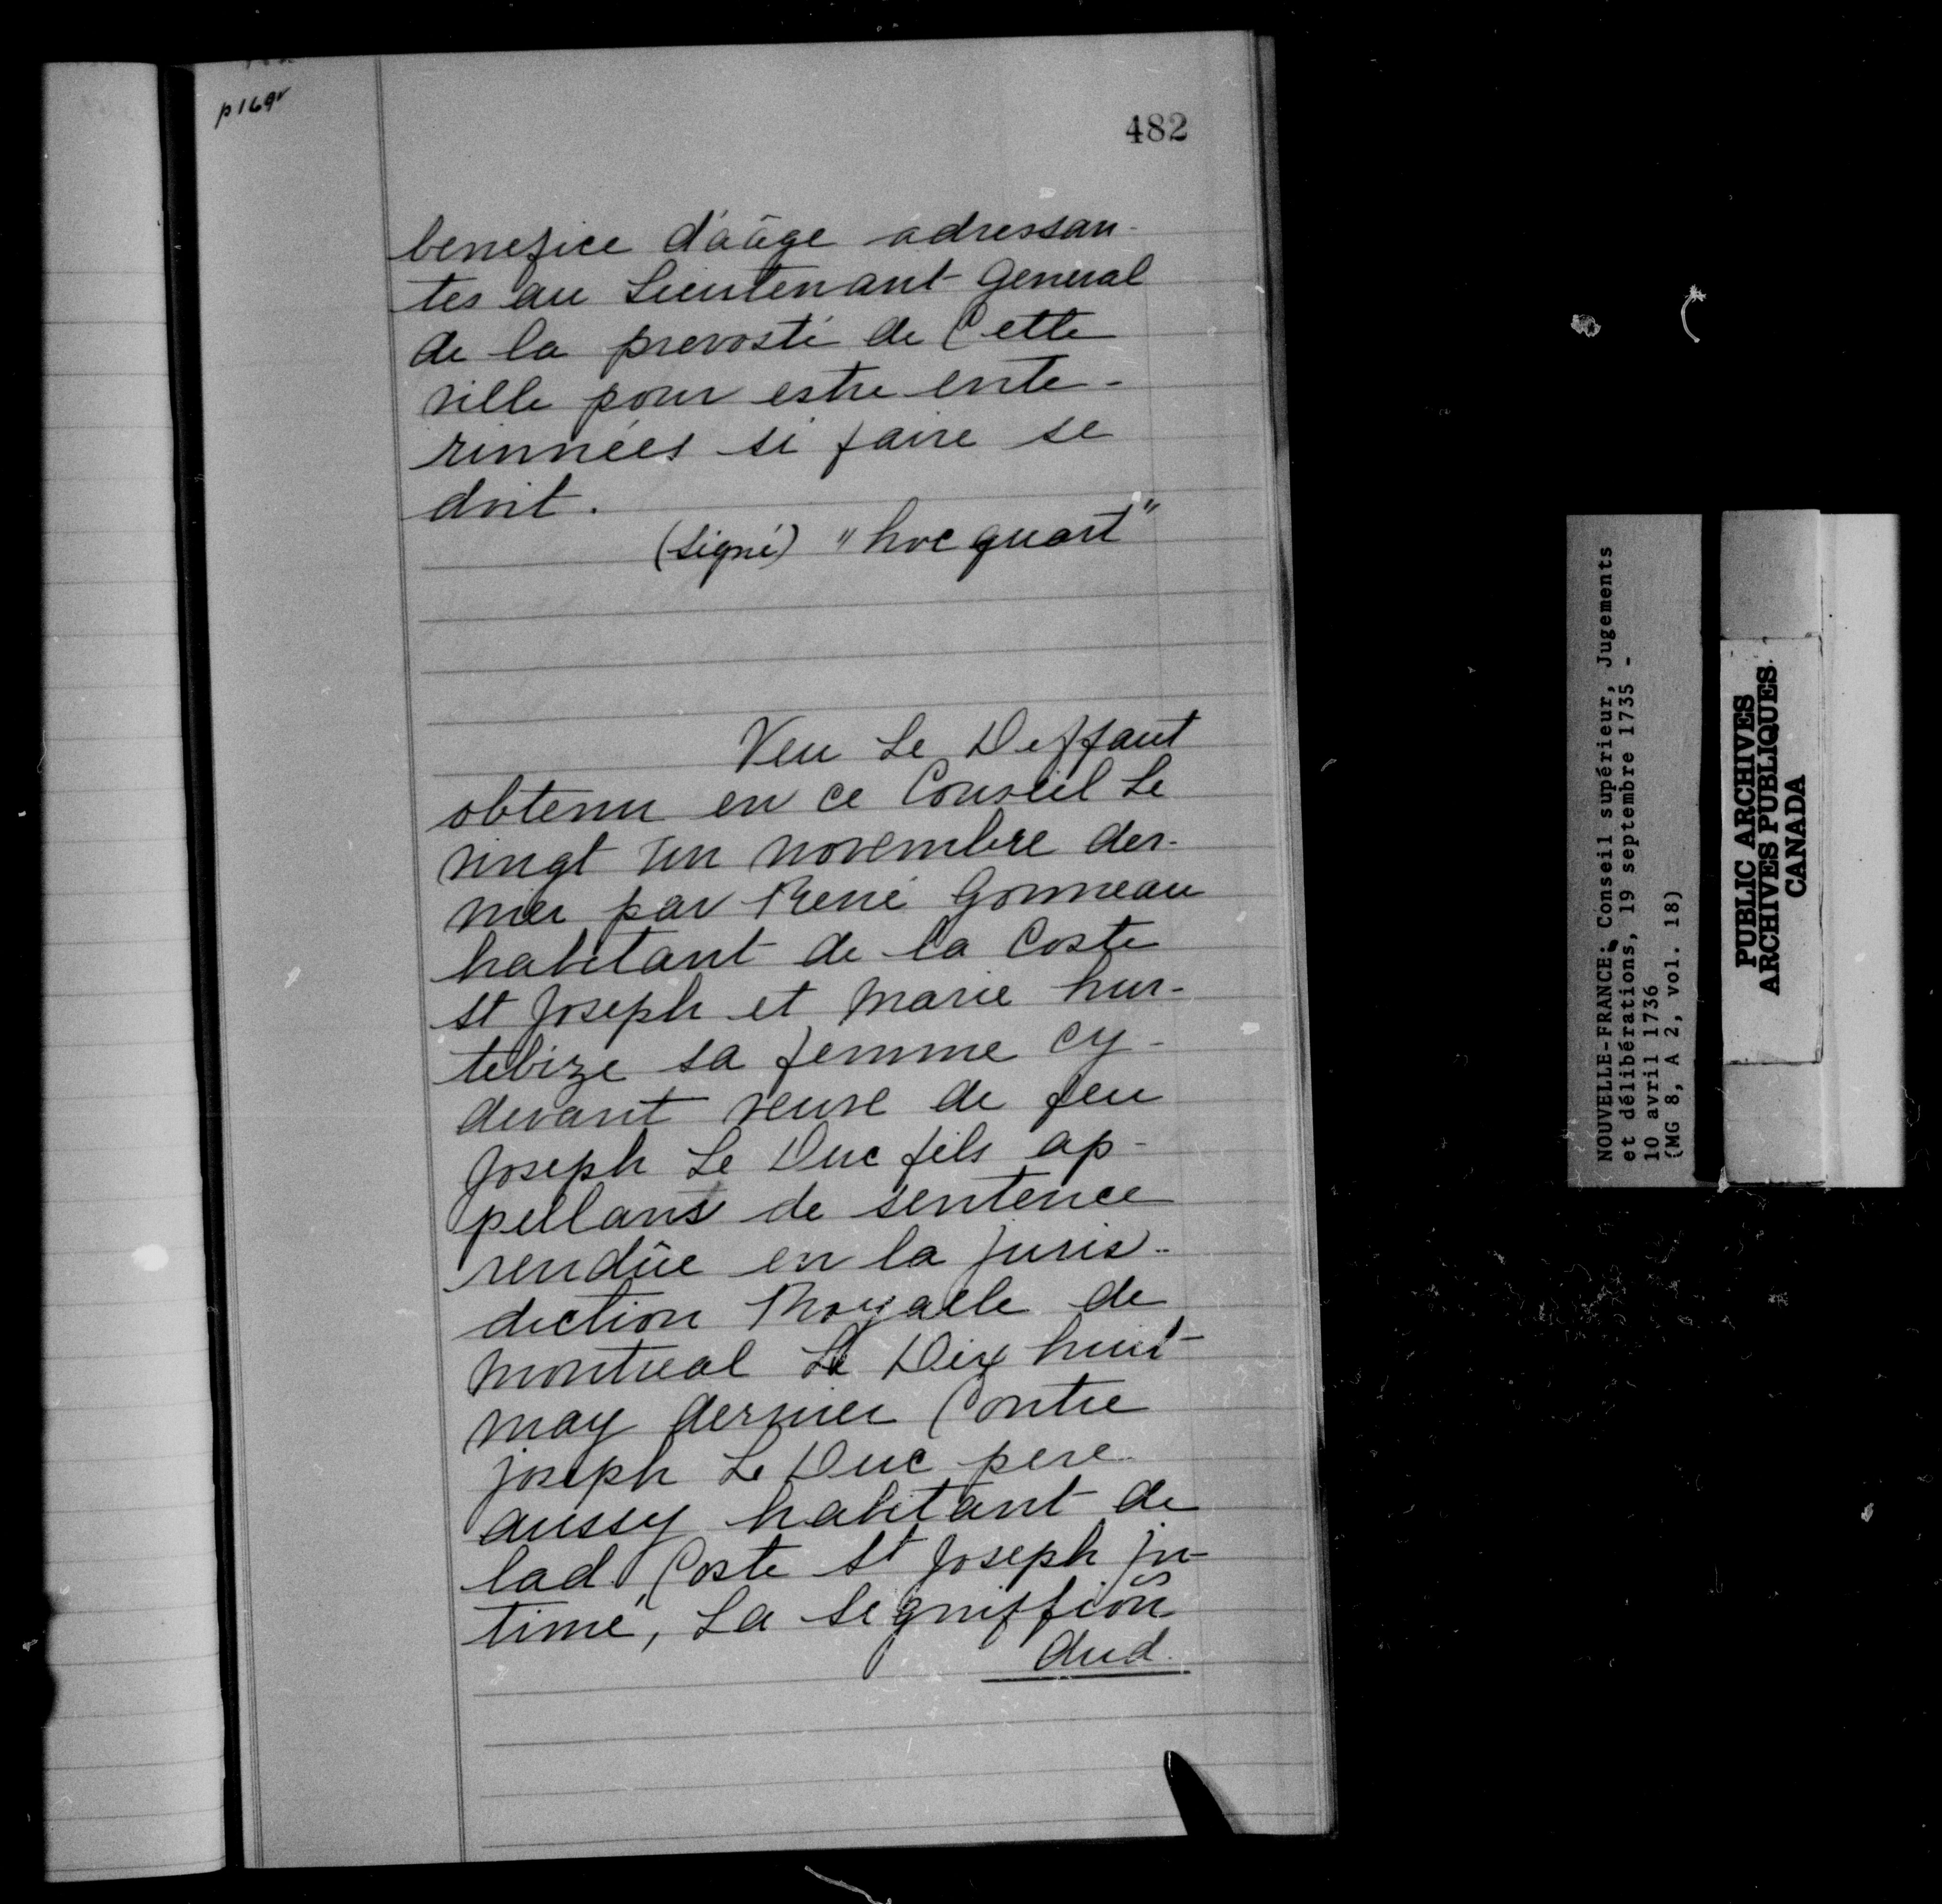 p169v
482
benefice d'aâge adressan-
tes au Lieutenant general
de la prevosté de Cette
ville pour estre ente-
rinnées si faire se
doit.
(signé) "hocquart"
Veu Le Deffaut
obtenu en ce Conseil Le
vingt un novembre der-
nier par René Gonneau
habitant de la Coste
st Joseph et Marie hur-
tebize sa femme cy-
devant veuve de feu
Joseph Le Duc fils ap-
pellans de sentence
rendüe en la juris-
diction Royalle de
montreal Le Dix huit
may dernier Contre
joseph Le Duc pere
aussy habitant de
lad. Coste st Joseph jn-
timé, La Signiffiõn
dud.
NOUVELLE-FRANCE: Conseil supérieur, Jugements
et délibérations, 19 septembre 1735 -
10 avril 1736
(MG 8, A 2, vol. 18)
PUBLIC ARCHIVES
ARCHIVES PUBLIQUES
CANADA